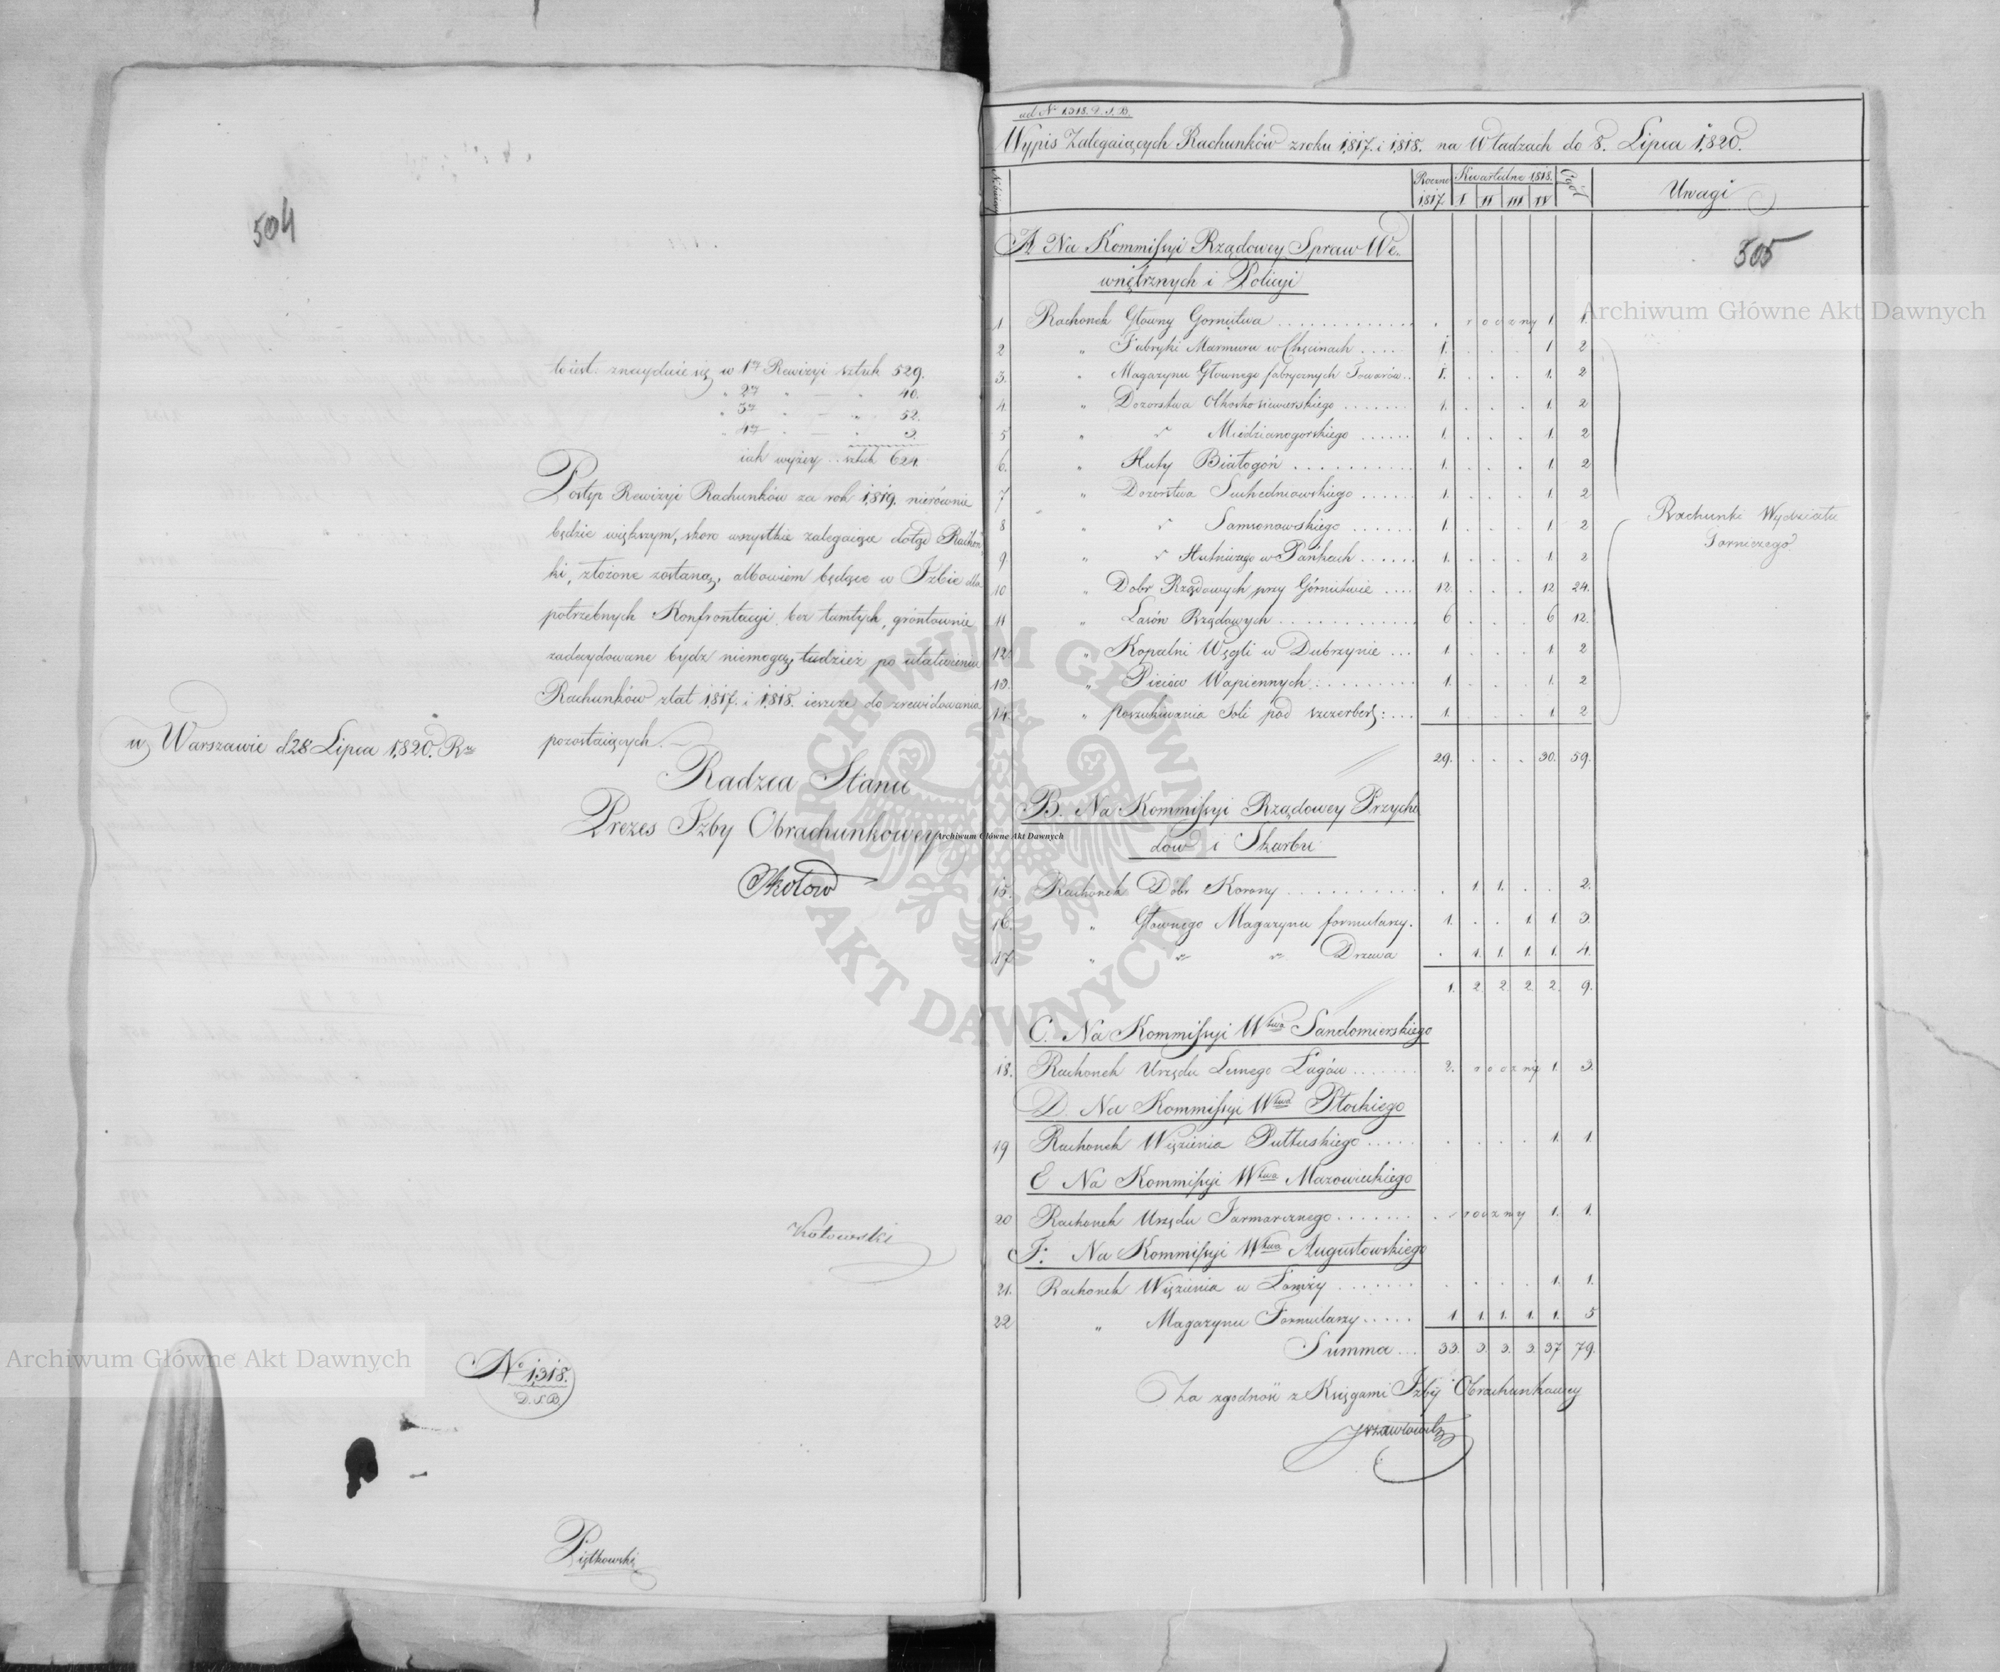 504
to iest: znayduie się w 1ey Rewizyi sztuk 529.
" 2ey " — " 40.
" 3ey " — " 52.
" 4ey " — " 3.
iak wyżey .. sztuk 624.
Postęp Rewizyi Rachunków za rok 1819. nierównie
będzie większym, skoro wszystkie zalegaiące dotąd Rachon,
ki, złożone zostaną, albowiem będące w Izbie dla
potrzebnych Konfrontacyi bez tamtych, grontownie
zadecydowane bydz niemogą, tudzież po ułatwieniu
Rachunków z lat 1817. i 1818. ieszcze do zrewidowania
pozostaiących. —
w Warszawie d 28 Lipca 1820. R
Radzca Stanu
Prezes Izby Obrachunkowey
Kotowski
No 1318.
D. S. B.
Piętkowski
ad No 1318. D. S. B.
Wypis Zalegaiących Rachunków z roku 1817. i 1818. na Władzach do 8. Lipca 1820.
Roczne 1817. Kwartalne 1818. I II III IV Ogół Uwagi
505
A. Na Kommissyi Rządowey Spraw We-
wnętrznych i Policyi
1. Rachonek Głowny Gornictwa . . . . . roczny 1. 1.
2 " Fabryki Marmuru w Chęcinach . . . . 1. . . . 1 2
3. " Magazynu Głownego fabrycznych Towarów . . 1. . . . 1. 2
4. " Dozorstwa Olkosko siewierskiego . . . . 1. . . . 1. 2
5 " " Miedzianogorskiego . . . . 1. . . . 1. 2
6. " Huty Białogoń . . . . 1. . . . 1. 2
7 " Dozorstwa Suchedniowskiego . . . . 1. . . . 1. 2
8 " " Samsonowskiego . . . . 1. . . . 1. 2
9 " " Hutniczego w Pańkach . . . . 1. . . . 1 2
10 " Dobr Rządowych przy Górnictwie . . . . 12. . . . 12 24.
11 " Lasów Rządowych . . . . 6 . . . 6 12.
12 " Kopalni Węgli w Dąbrzynie . . . 1 . . . 1 2
13. " Pieców Wapiennych . . . . 1. . . . 1. 2
14. " poszukiwania Soli pod szczerbeṡ: . . . 1. . . . 1 2
Rachunki Wydziału
Gorniczego
29. . . . 30. 59.
B. Na Kommissyi Rządowey Przycho
dow i Skarbu
15. Rachonek Dóbr Korony . . . . . 1. 1. . . 2.
16. " Głownego Magazynu formularzy. 1. . . 1. 1. 3.
17. " " " Drzewa . 1. 1. 1. 1. 4.
1. 2 2. 2. 2. 9.
C. Na Kommissyi Wtwa Sandomierskiego
18. Rachonek Urzędu Leśnego Łagów . . . . 2. roczny 1. 3.
D. Na Kommissyi Wtwa Płockiego
19 Rachonek Więzienia Pułtuskiego . . . . . . . . 1. 1.
E Na Kommissyi Wtwa Mazowieckiego
20 Rachonek Urzędu Jarmarcznego . . . . . roczny 1. 1.
F: Na Kommissyi Wtwa Augustowskiego
21. Rachonek Więzienia w Łomży . . . . . . . . 1. 1.
22 " Magazynu Formularzy . . . . . 1 1. 1. 1. 1. 5
Summa . . . 33. 3. 3. 3. 37 79.
Za zgodność z Księgami Izby Obrachunkowey
Archiwum Główne Akt Dawnych
Archiwum Główne Akt Dawnych
Archiwum Główne Akt Dawnych
ARCHIWUM GŁÓWNE AKT DAWNYCH